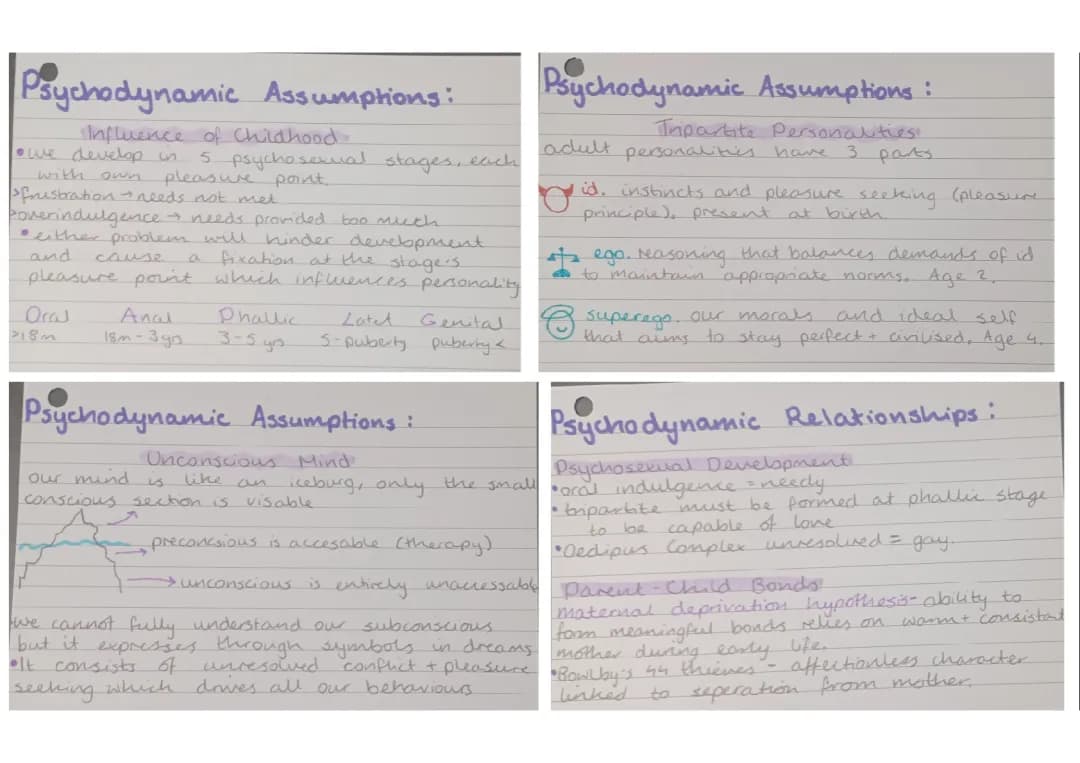 Psychodynamic Assumptions:
Influence of Childhood
•we develop in 5 psychosexual stages, each
with own pleasure point.
>frustration → needs not met
>overindulgence → needs provided too much
•either problem will hinder development
and cause a fixation at the stage's
pleasure point which influences personality
Oral Anal Phallic Latet Genital
>18m 18m-3yrs 3-5 yrs 5-puberty puberty<
Psychodynamic Assumptions:
Tripartite Personalities
adult personalities have 3 parts
id. instincts and pleasure seeking (pleasure
principle). present at birth
ego. reasoning that balances demands of id
to maintain appropriate norms. Age 2.
superego. our morals and ideal self
that aims to stay perfect + civilised. Age 4.
Psychodynamic Assumptions:
Unconscious Mind
our mind is like an iceburg, only the small
conscious section is visable
preconcsious is accesable (therapy)
unconscious is entirely unaccessable
we cannot fully understand our subconscious
but it expresses through symbols in dreams
•It consists of unresolved conflict + pleasure
seeking which drives all our behaviours
Psychodynamic Relationships:
Psychosexual Development
•oral indulgence = needy
•tripartite must be formed at phallic stage
to be capable of love
•Oedipus Complex unresolved = gay.
Parent-Child Bonds
maternal deprivation hypothesis- ability to
form meaningful bonds relies on warm + consistant
mother during early life.
•Bowlby's 44 thieves - affectionless character
linked to seperation from mother.